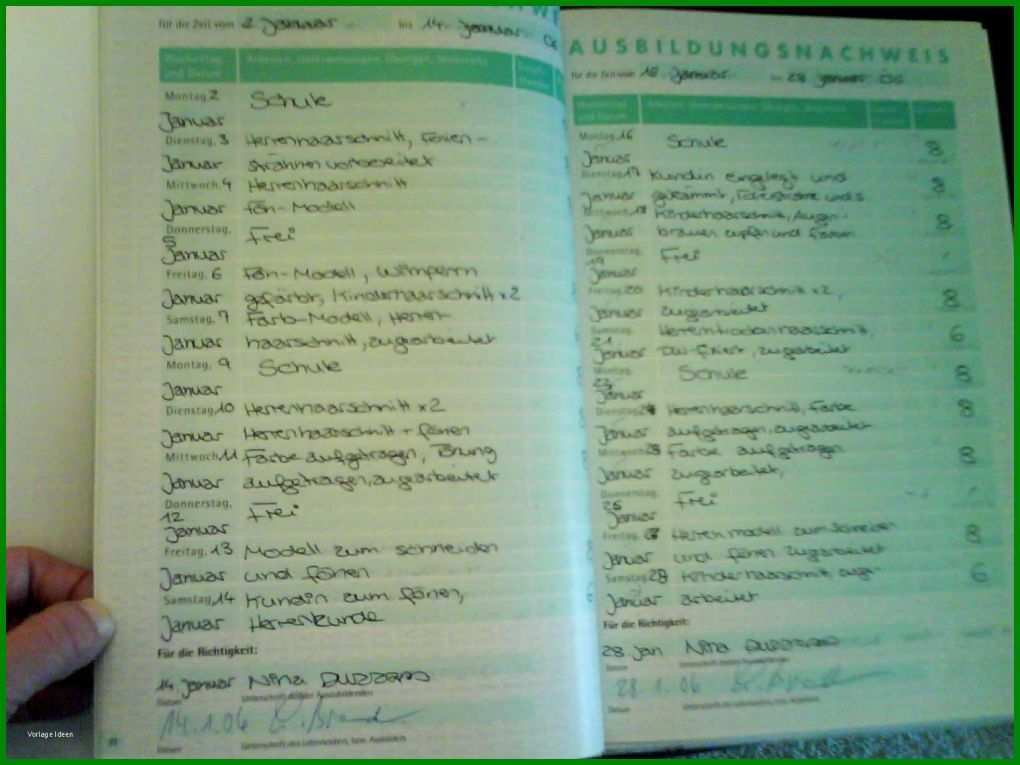 für die Zeit vom 2. Januar bis 14. Januar
Wochentag
und Datum
Montag, 2 Schule
Januar
Dienstag, 3 Herrenhaarschnitt, Folien-
Januar strähnen vorbereitet
Mittwoch, 4 Herrenhaarschnitt
Januar Fön-Modell
Donnerstag, Frei
5
Januar
Freitag, 6 Fön-Modell, Wimpern
Januar gefärbt, Kinderhaarschnitt x2
Samstag, 7 Farb-Modell, Herren-
Januar haarschnitt, zugearbeitet
Montag, 9 Schule
Januar
Dienstag, 10 Herrenhaarschnitt x2
Januar Herrenhaarschnitt + fönen
Mittwoch, 11 Farbe aufgetragen,
Januar aufgetragen, zugearbeitet
Donnerstag, Frei
12
Januar
Freitag, 13 Modell zum schneiden
Januar und fönen
Samstag, 14 Kundin zum fönen,
Januar Herrenkunde
Für die Richtigkeit:
14. Januar Nina
Datum Unterschrift des/der Auszubildenden
14.1.06
Datum Unterschrift des Ausbildenden, bzw. Ausbilders
AUSBILDUNGSNACHWEIS
für die Zeit vom 16. Januar bis 28. Januar 06
und Datum
Montag, 16 Schule 8
Januar
Dienstag, 17 Kundin eingelegt und 8
Januar gekämmt,
Mittwoch, 18 Kinderhaarschnitt, Augen- 8
Januar brauen zupfen und färben
Donnerstag, Frei
19
Januar
Freitag, 20 Kinderhaarschnitt x2, 8
Januar zugearbeitet
Samstag, 6
21
Januar zugearbeitet
Montag, Schule 8
23
Januar
Dienstag, 24 Herrenhaarschnitt, Farbe 8
Januar aufgetragen, zugearbeitet
Mittwoch, 25 Farbe aufgetragen 8
Januar zugearbeitet,
Donnerstag, Frei
Januar
Freitag, Herrenmodell zum schneiden 8
Januar und fönen zugearbeitet
Samstag, 28 Kinderhaarschnitt, zuge- 6
Januar arbeitet
Für die Richtigkeit:
28 Jan Nina
Datum
28.1.06
Datum
Vorlage Ideen